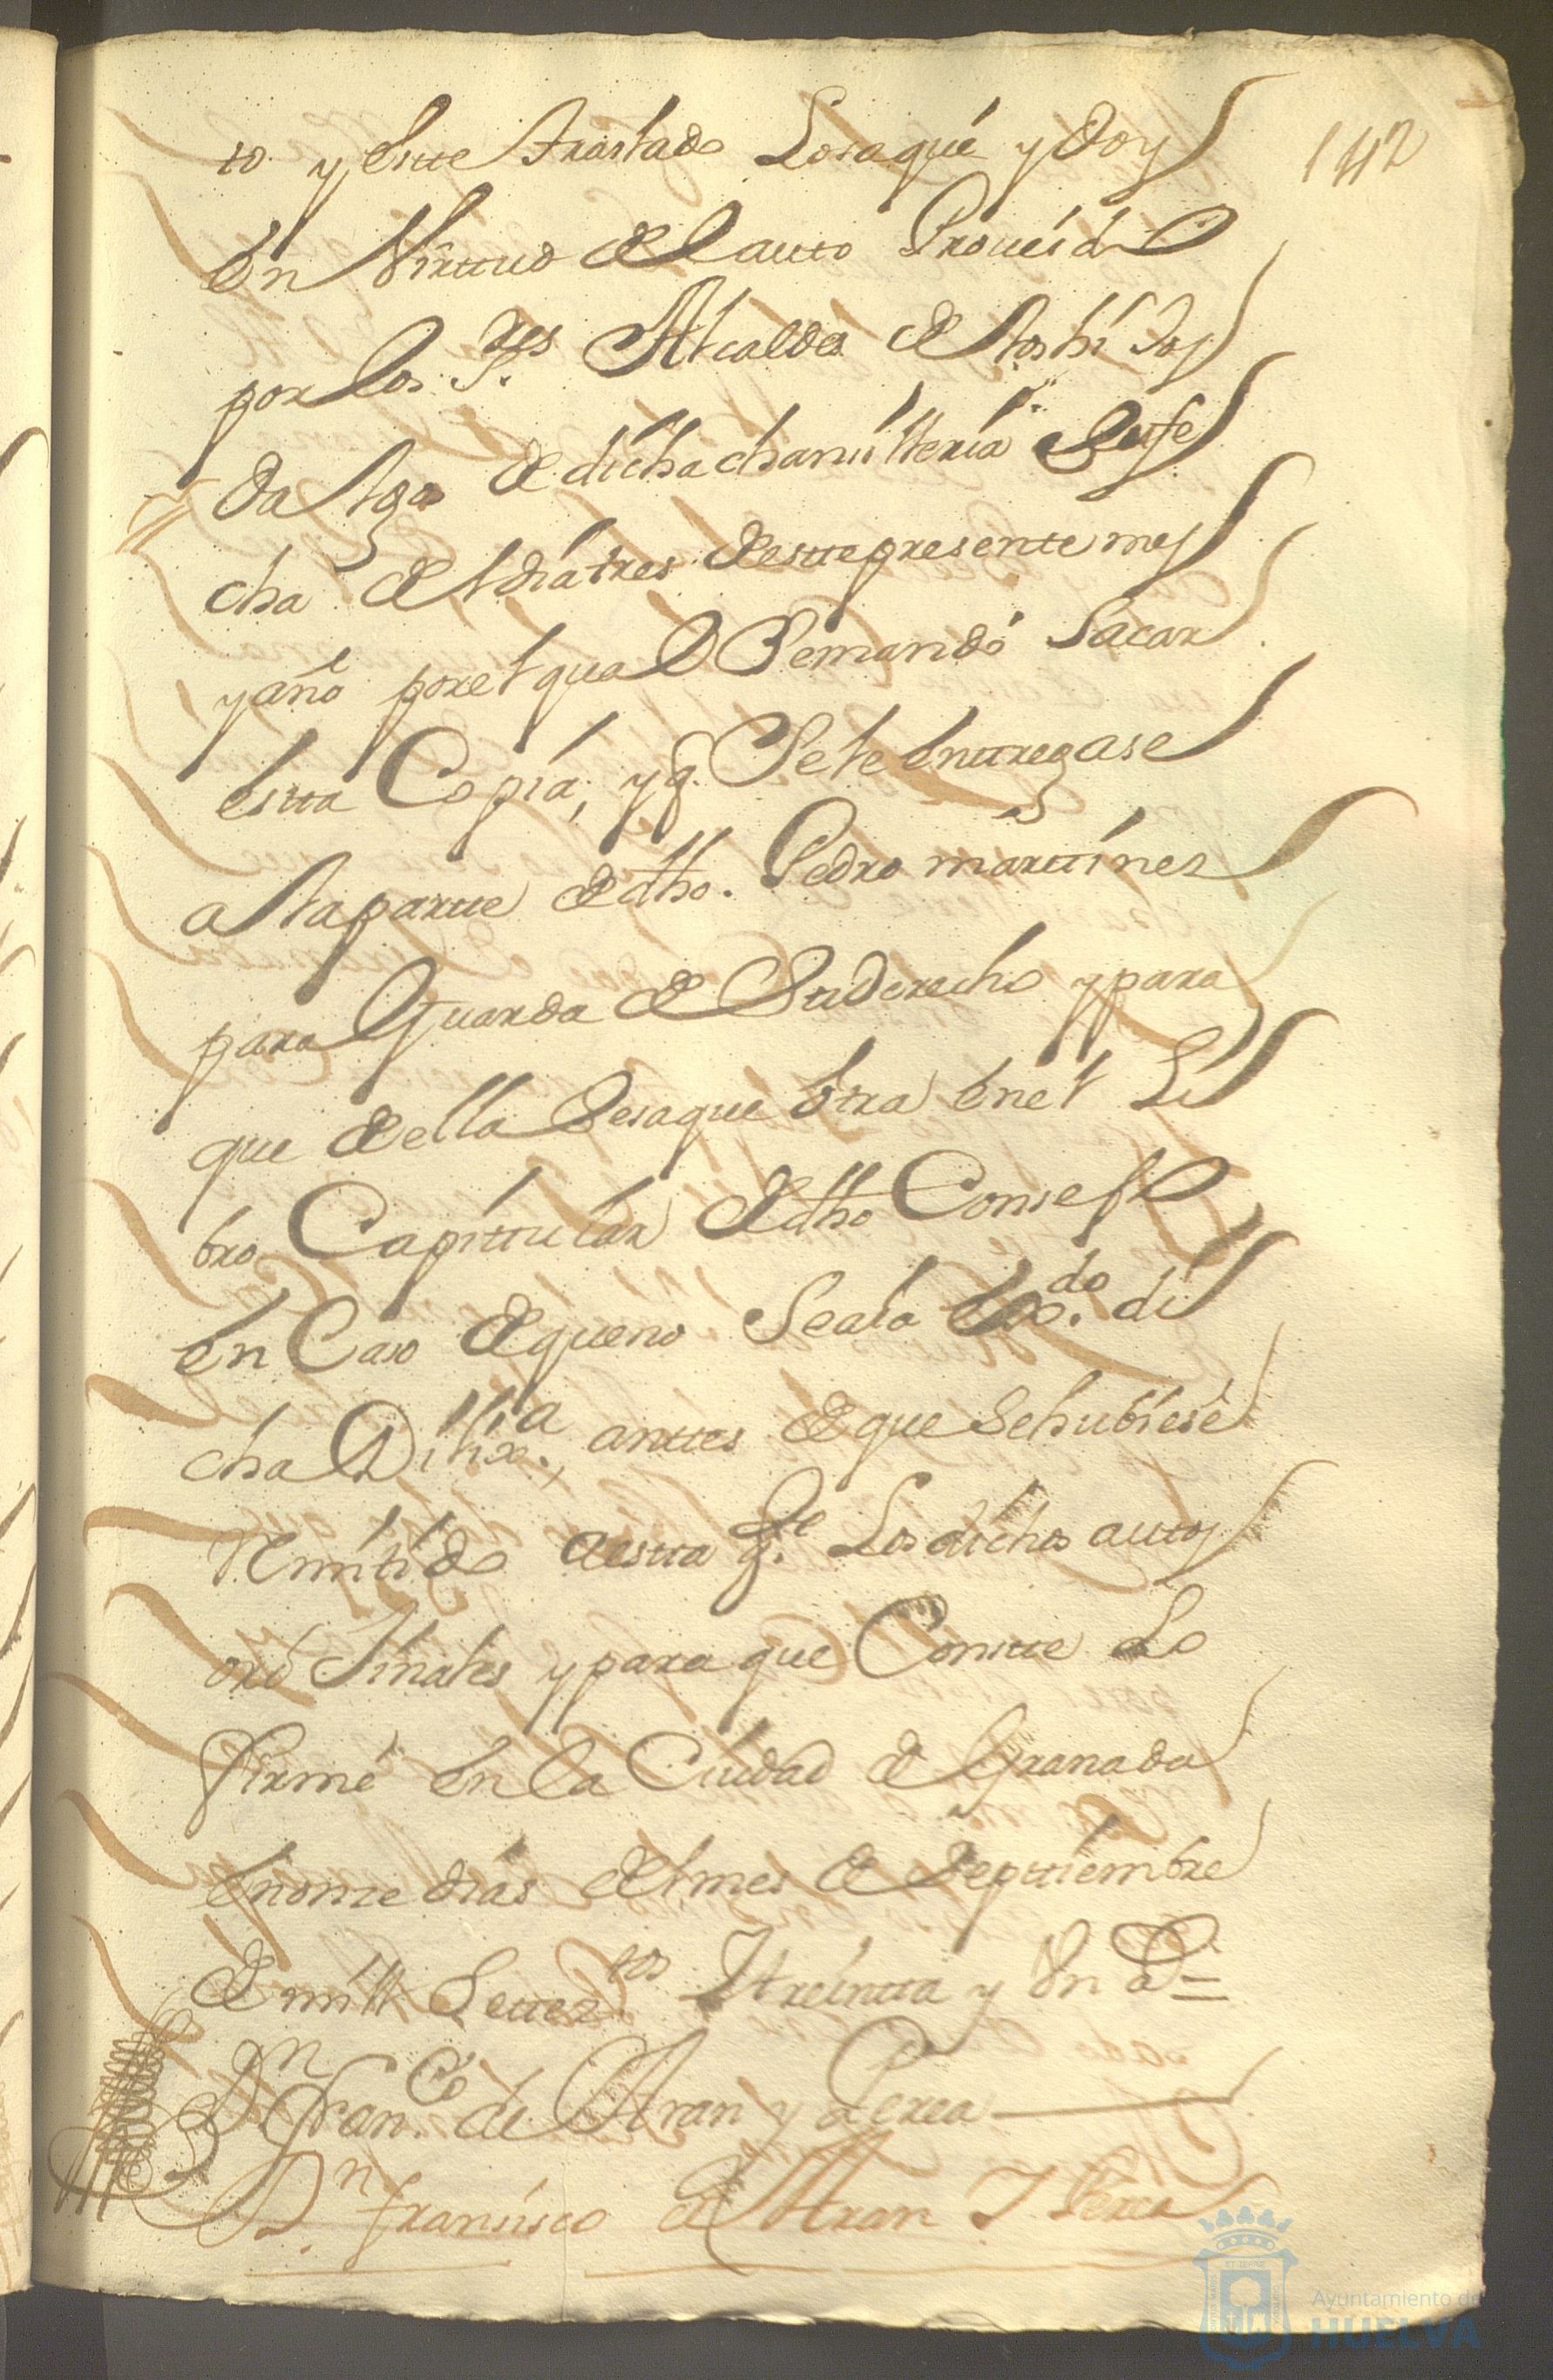 142
to y este traslado lo saqué y doy
en Virttud del autto Proueido
por los S.res Alcaldes de los hijos
dalgo de dicha chanzilleria Su fe
cha del dia tres de este presente mes
y año por el qual Se mandó Sacar
estta Copia, y q. Se le enttregase
a la partte de dho. Pedro marttines
para Guarda de Su derecho y para
que de ella Se saque otra en el Li
bro Capittular de dho Consejo
en Caso de que no Se aia ex.do di
cha Dilix.a, anttes de que Se hubiese
Remitido a estta Los dichos auttos
ord Jinales y para que Constte Lo
firmé en la Ciudad de Granada
en onze dias del mes de Septtiembre
de mill Settez.tos Y treintta y Un a.s =
D.n Fran.co de Aran y Perea
D.n francisco de Aran Y Perea
Ayuntamiento de
HUELVA